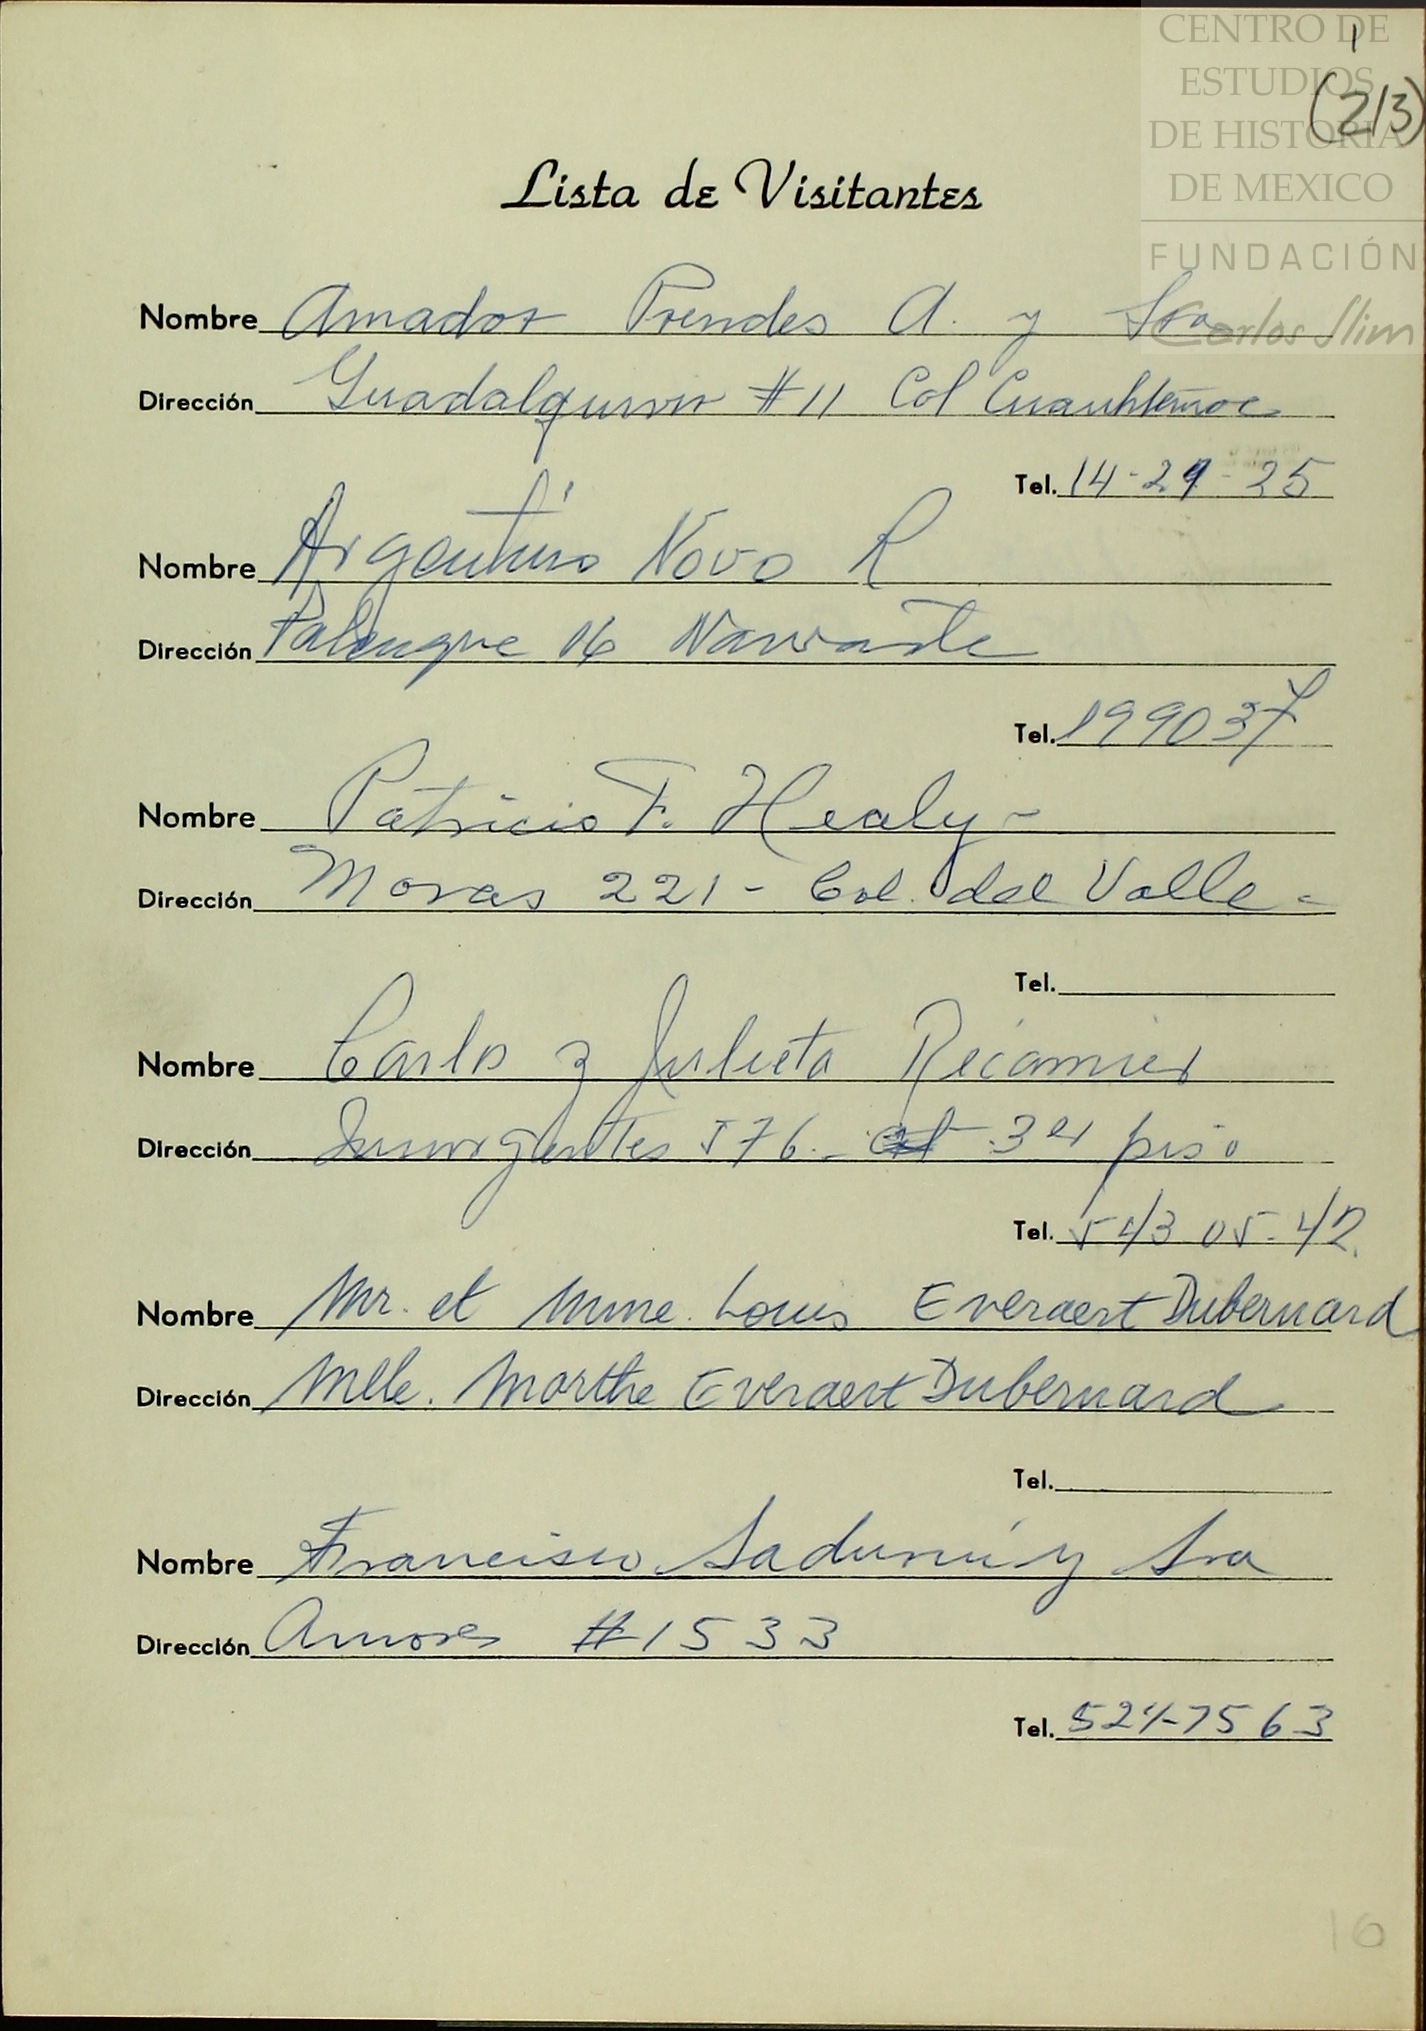 CENTRO DE
ESTUDIOS
DE HISTORIA
DE MEXICO
FUNDACIÓN
Carlos Slim
1
(213)
Lista de Visitantes
Nombre Amador Prendes A. y Sra
Dirección Guadalquivir #11 Col Cuauhtémoc
Tel. 14-29-25
Nombre Argentino Novo R
Dirección Palenque 16 Narvarte
Tel. 199037
Nombre Patricio F. Healy-
Dirección Moras 221 - Col. del Valle -
Tel.
Nombre Carlos y Julieta Récamier
Dirección Insurgentes 576 - 3er piso
Tel. 543 05-42
Nombre Mr. et Mme. Louis Everaert Dubernard
Dirección Mlle. Marthe Everaert Dubernard
Tel.
Nombre Francisco Saduní y Sra
Dirección Amores #1533
Tel. 524-7563
16